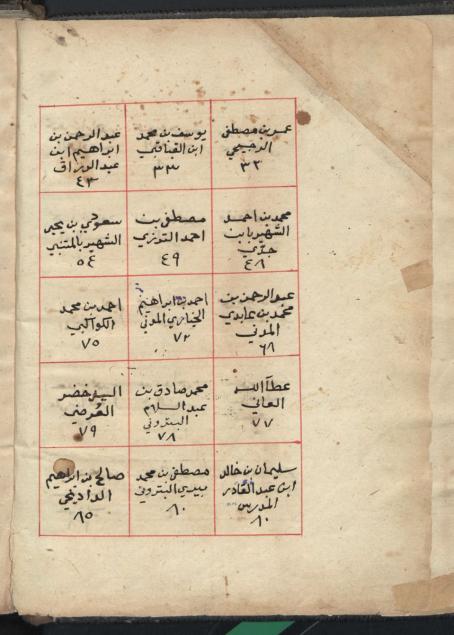 عمر بن مصطفى
الرجيحي
٣٢
يوسف بن محمد
ابن القناقي
٣٣
عبد الرحمن بن
ابراهيم ابن
عبد الرزاق
٤٣
محمد بن احمد
الشهير بابن
جدّي
٤٨
مصطفى بن
احمد التوزي
٤٩
سعودي بن يحيى
الشهير بالمتنبي
٥٤
عبد الرحمن بن
محمد بن عابدي
المدني
٦٨
احمد بن ابراهيم
الخياري المدني
٧٢
احمد بن محمد
الكواكبي
٧٥
عطاء الله
العاني
٧٧
محمد صادق بن
عبد السلام
البتروني
٧٨
السيد خضر
العُرضي
٧٩
سليمان بن خالد
ابن عبد القادر
المدرس
٨٠
مصطفى بن محمد
بيري البتروني
٨٠
صالح بن ابراهيم
الداديخي
٨٥